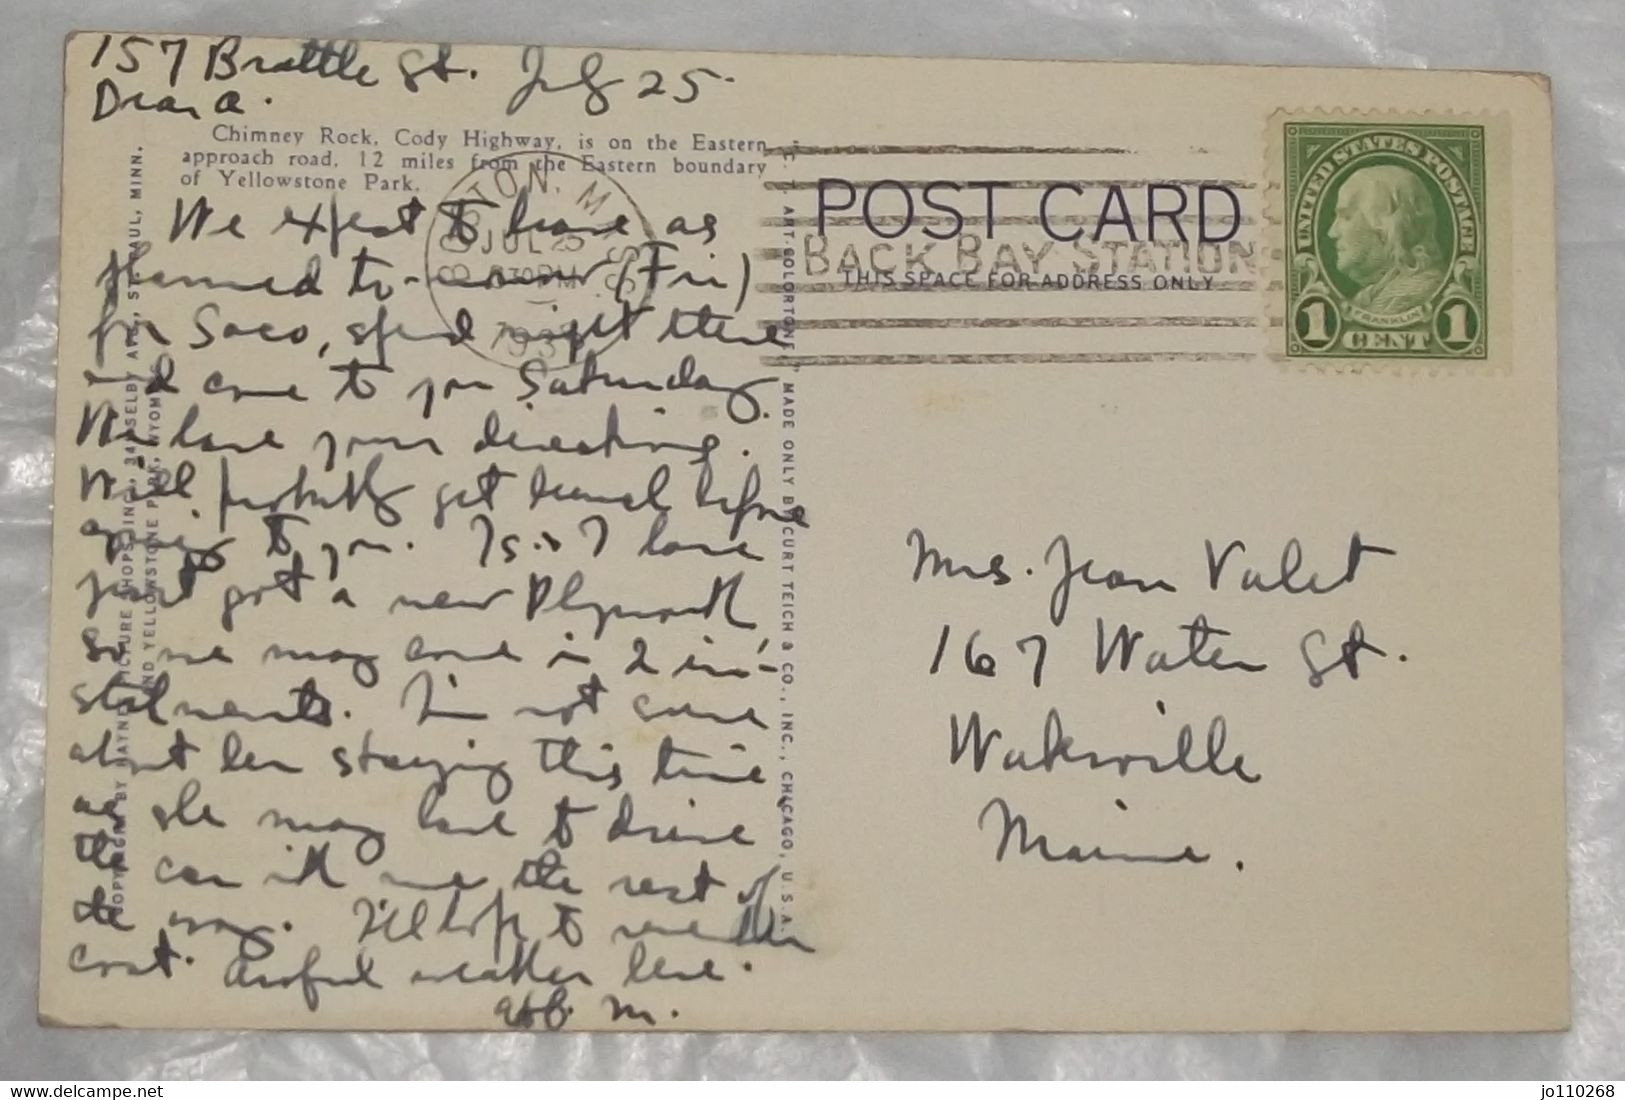 157 Brattle St. July 25.
Dear a.
Chimney Rock, Cody Highway, is on the Eastern
approach road, 12 miles from the Eastern boundary
of Yellowstone Park.
We expect to leave as
planned to-morrow (Fri)
for Saco, spend night there
and come to you Saturday.
We have your directions.
Will probably get lunch before
going to you. I have
just got a new Plymouth,
so we may come in 2 in-
stalments. I'm not sure
about her staying this time
as she may have to drive
the car with me the rest of
the way. I'll hope to
cost. Awful weather here.
M.
POST CARD
THIS SPACE FOR ADDRESS ONLY
BACK BAY STATION
BOSTON, MASS
JUL 25
730PM
193
UNITED STATES POSTAGE
FRANKLIN
1 CENT 1
Mrs. Jean Valet
167 Water St.
Waterville
Maine.
COPYRIGHT BY HAYNES PICTURE SHOPS, INC., 341 SELBY AVE., ST. PAUL, MINN.
AND YELLOWSTONE PARK, WYOMING
"C. T. ART-COLORTONE" MADE ONLY BY CURT TEICH & CO., INC., CHICAGO, U.S.A.
www.delcampe.net
jo110268